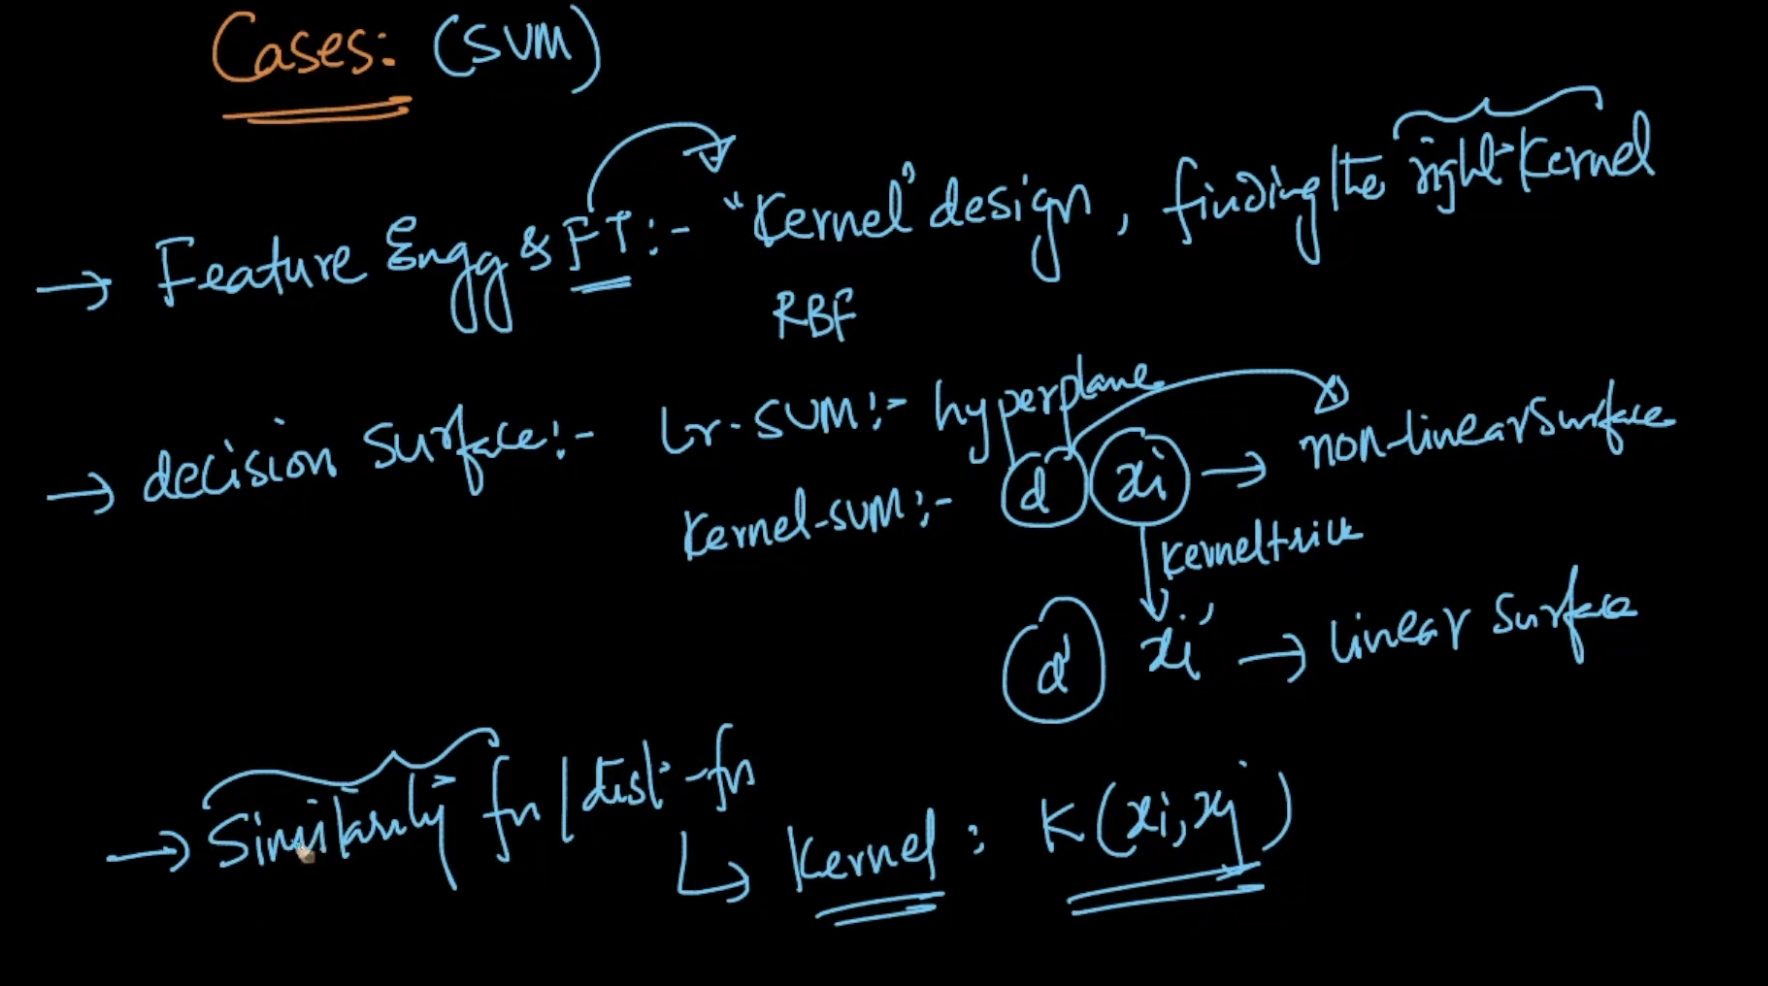 Cases: (SVM)
→ Feature Engg & FT:- "Kernel" design, finding the right Kernel
RBF
→ decision surface:- Lr-SVM:- hyperplane
Kernel-SVM:- d xi → non-linear surface
Kernel trick
d' xi' → linear surface
→ Similarity fn / dist-fn
↳ Kernel: K(xi, xj)